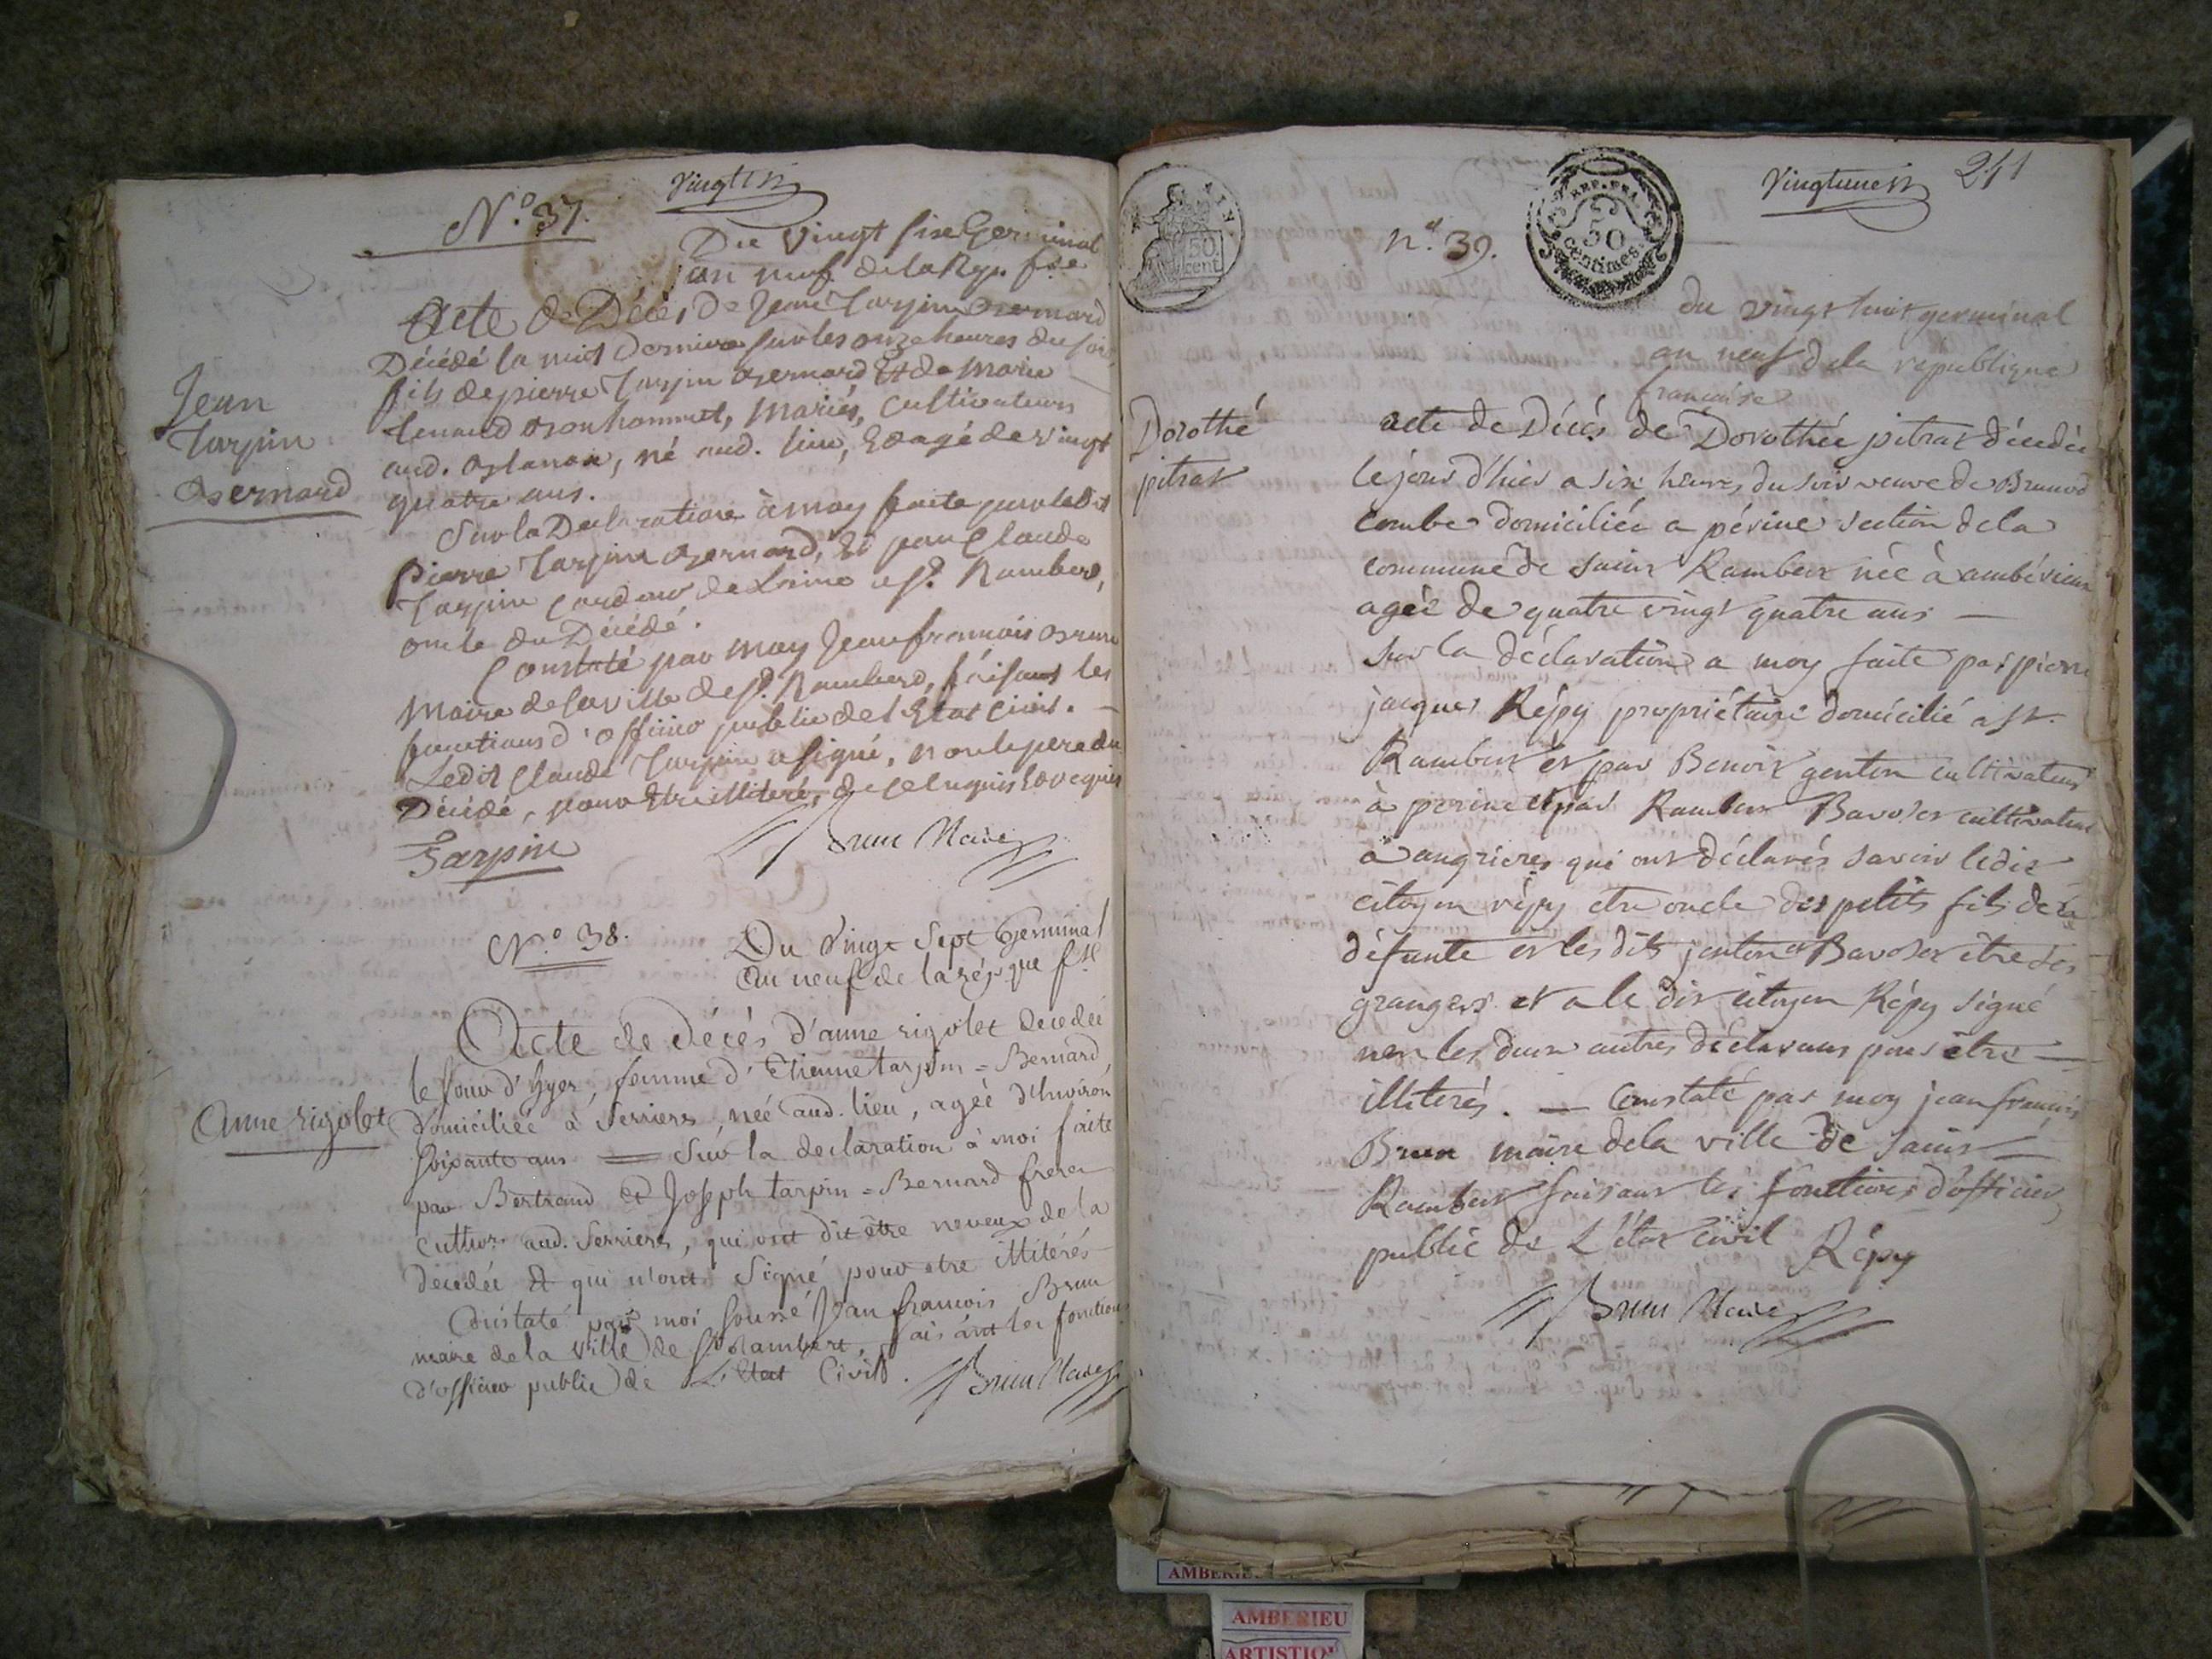 N.o 37.
Du Vingt six Germinal
an neuf de la Rep. fse
Jean
Tarpin
Bernard
Acte de Décès de Jean Tarpin Bernard
Décédé la nuit derniere sur les onze heures du soir
fils de pierre Tarpin Bernard Et de Marie
bonhommet, Mariés, Cultivateurs
aud. né aud. lieu, Et agé de vingt
quatre ans.
Sur la Declaration à moy faite par ledit
Pierre Tarpin Bernard, Et par Claude
Tarpin a St. Rambert,
oncle du Décédé.
Constaté par moy Jean françois Brun
Maire de la ville de St. Rambert, faisant les
fonctions d'officier public de l'Etat Civil.
Ledit Claude Tarpin a signé, non le pere du
Décédé, pour Etre illiteré, de ce Enquis Et requis
Tarpin
Brun Maire
N.o 38.
Du Vingt Sept Germinal
an neuf de la rép.que fse
Anne rigolet
Acte de décès d'anne rigolet decedée
le jour d'hyer, femme d'Etienne tarpin = Bernard
domiciliée a Serrieres, née aud. lieu, agée d'Environ
soixante ans — Sur la declaration à moi faite
par Bertrand et Joseph tarpin = Bernard freres
cultivrs. aud. Serrieres, qui ont dit être neveux de la
decedée et qui n'ont Signé pour etre illitérés
Constaté par moi Jean françois Brun
maire de la ville de St Rambert, faisant les fonctions
d'officier public de L'Etat Civil.
Brun Maire
50 cent
n.o 39.
REP. FRA.
50
centimes
241
du vingt huit germinal
an neuf de la république
française
Dorothé
pitrat
acte de Décés de Dorothée pitrat décedée
le jour d'hier a six heures du soir veuve de
combe domiciliée a périne section de la
commune de saint Rambert née à ambérieux
agée de quatre vingt quatre ans —
sur la déclaration a moy faite par pierre
jacques Répy propriétaire domicilié a St.
Rambert et par Benoit genton cultivateur
à perine et par Rambert Bavoset cultivateur
à angrieres qui ont déclarés savoir le dit
citoyen répy etre oncle des petits fils de la
défunte et les dits jenton et Bavoset être ses
grangers et a le dit citoyen Répy signé
non les deux autres déclarans pour être —
illiterés. — Constaté par moy jean françois
Brun maire de la ville de saint —
Rambert faisant les fonctions d'officier
public de L'état civil
Répy
Brun Maire
AMBERIEU
AMBERIEU